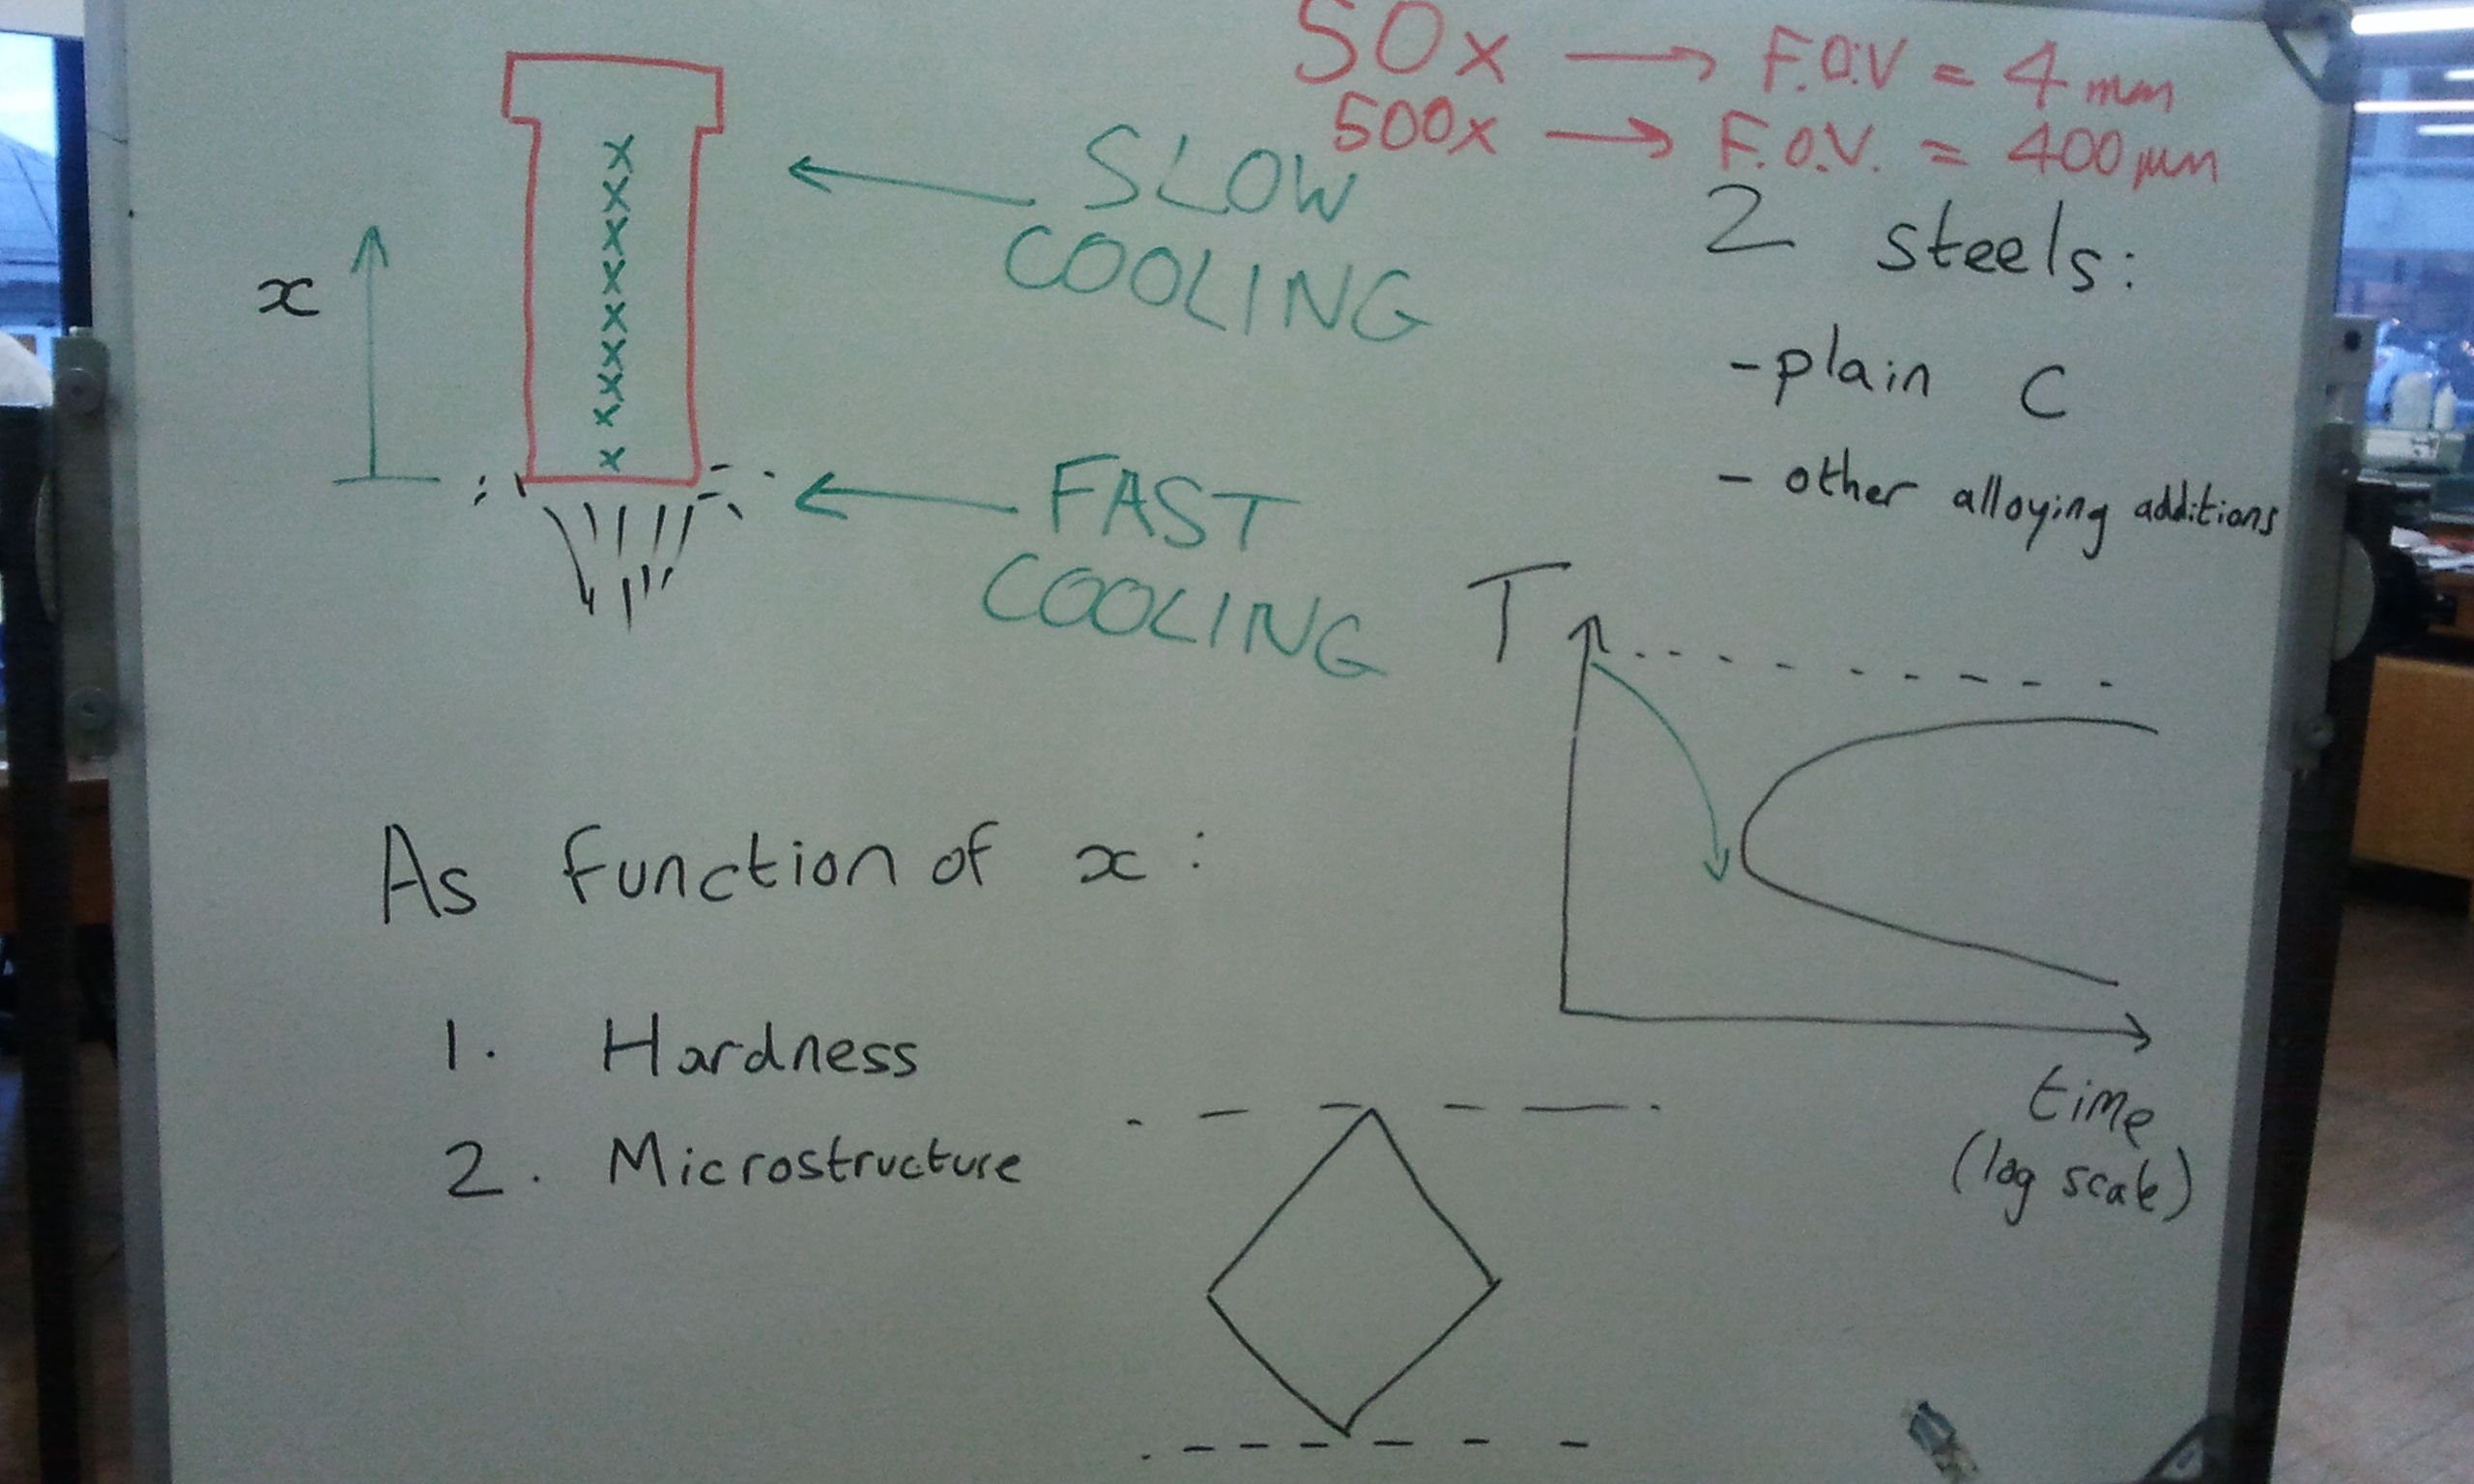 50x → F.O.V = 4 mm
500x → F.O.V. = 400 μm
SLOW
COOLING
x
FAST
COOLING
2 steels:
- plain C
- other alloying additions
T
time
(log scale)
As function of x :
1. Hardness
2. Microstructure